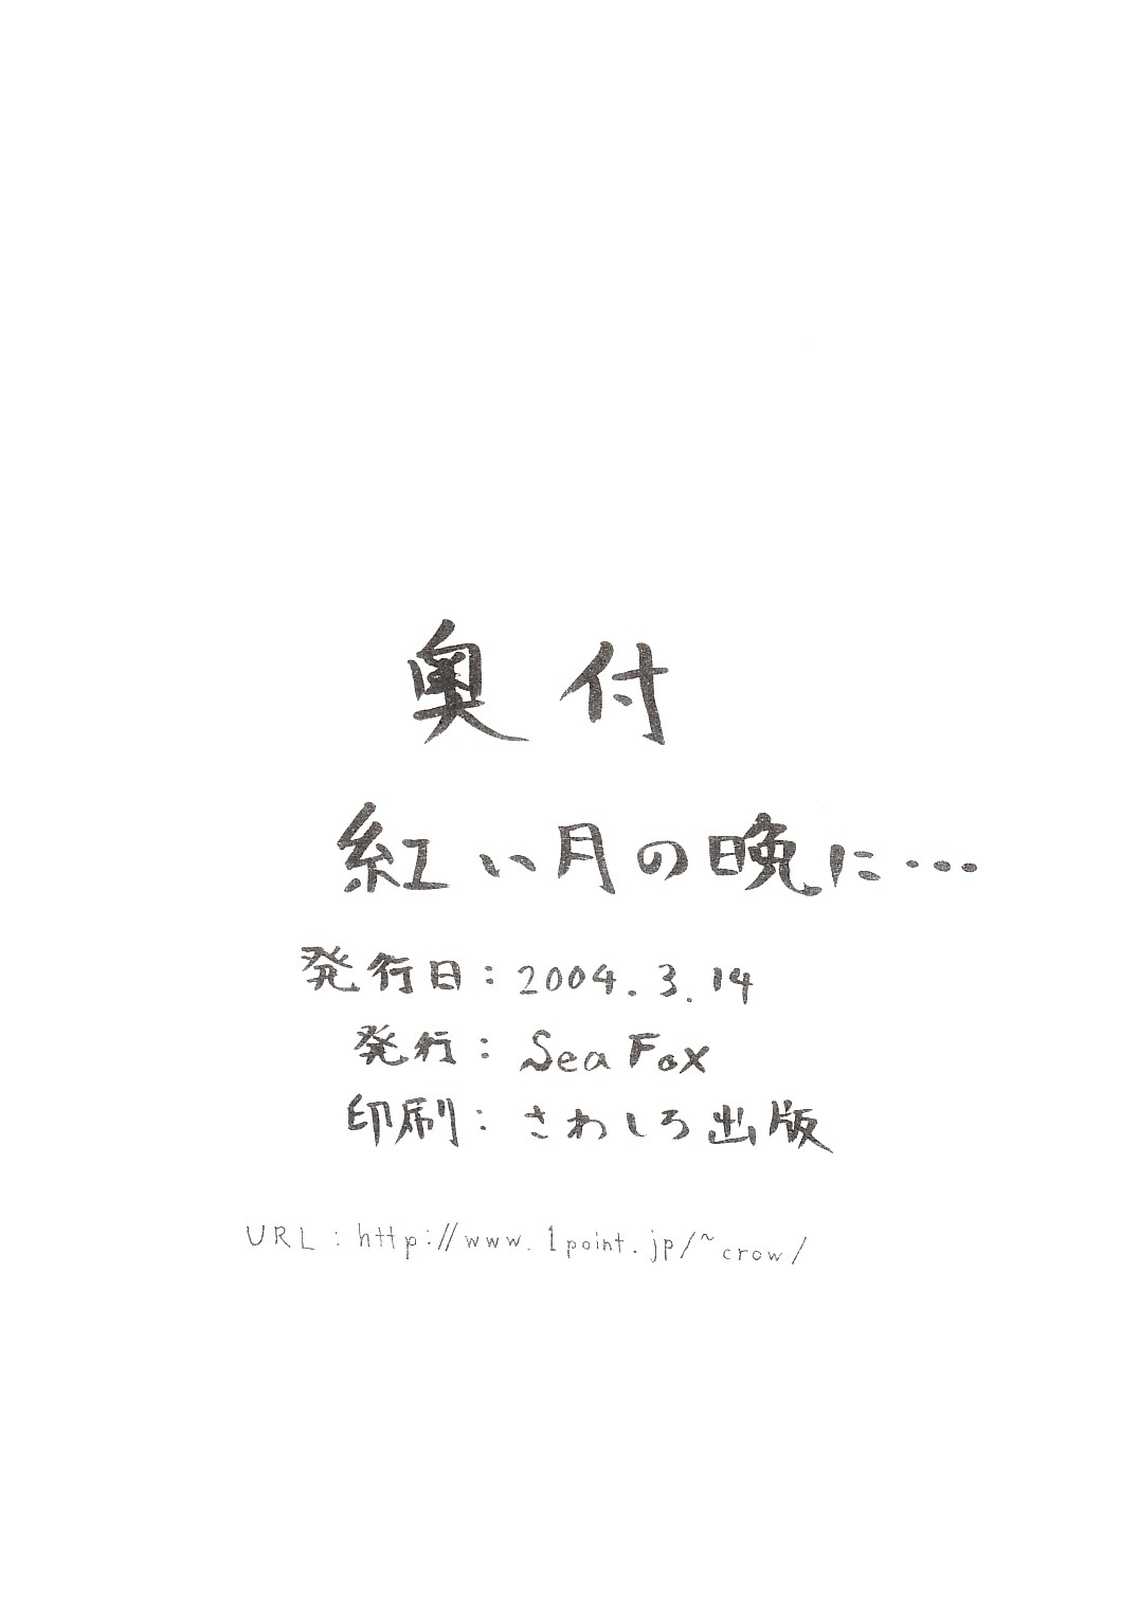 奥付
紅い月の晩に・・・
発行日：2004.3.14
発行：Sea Fox
印刷：さわしろ出版
URL：http://www.1point.jp/~crow/